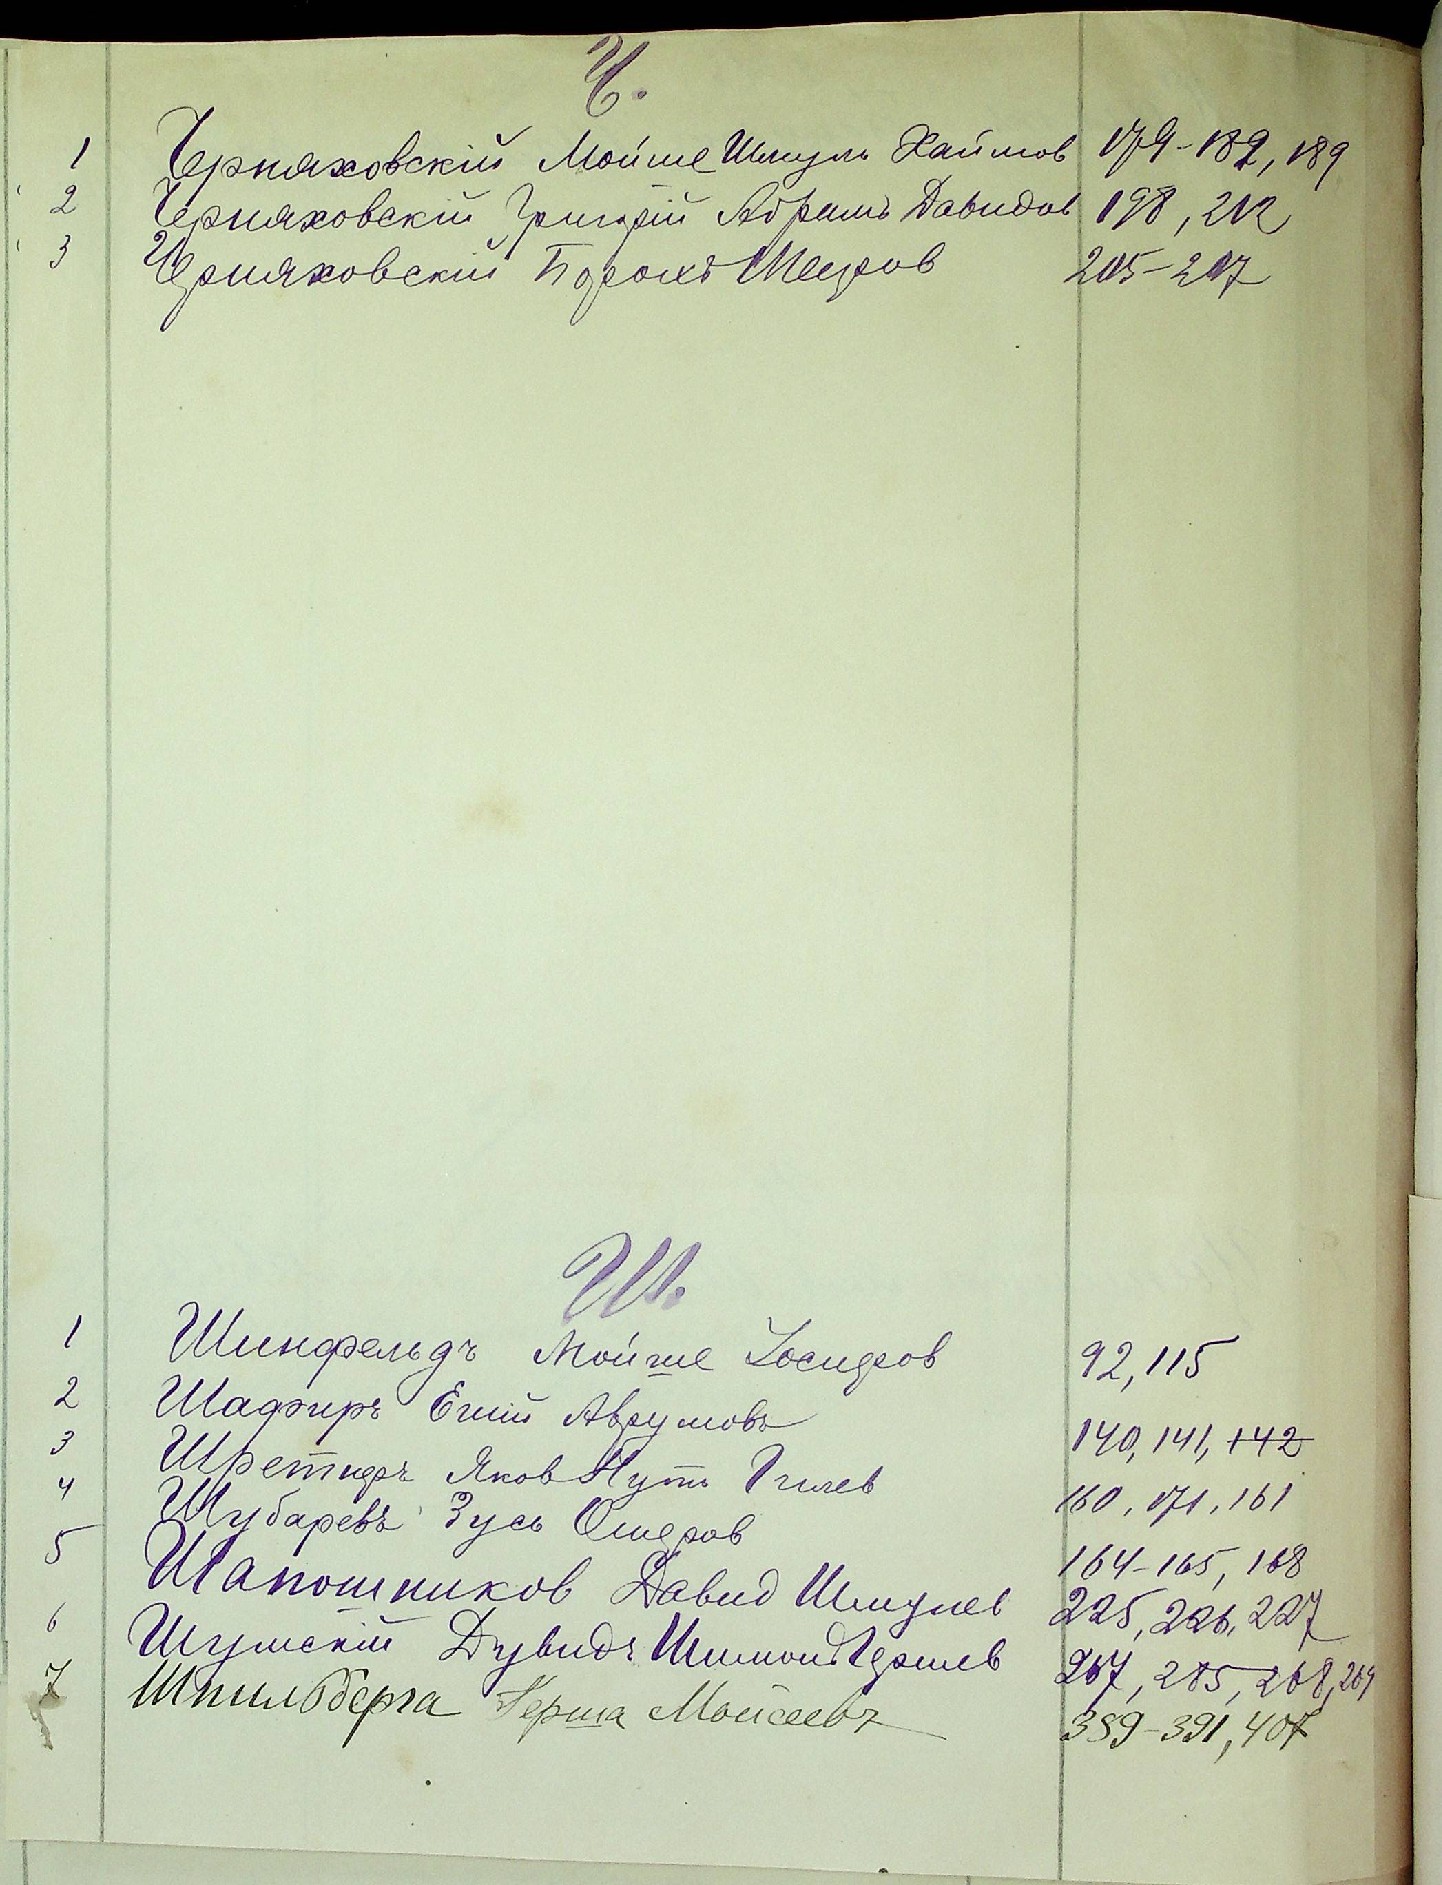 Ч.
1 Черняховскій Мойше Шмуль Хаимов 179-182, 189
2 Черняховскій Григорій Абрамъ Давидов 198, 212
3 Черняховскій Борохъ Мееров 205-207
Ш.
1 Шинфельдъ Мойше Іосиеров 92, 115
2 Шафиръ Евсій Аврумовъ 140, 141, 142
3 Шретеръ Яков Нута 160, 171, 161
4 Шубаревъ Зусь Ошеров 164-165, 168
5 Шапошников Давид Шмулев 225, 226, 227
6 Шумскій Дувидъ Шимон Гершев 267, 285, 268, 269
7 Шпильберга Герша Мойсеевъ 389-391, 407